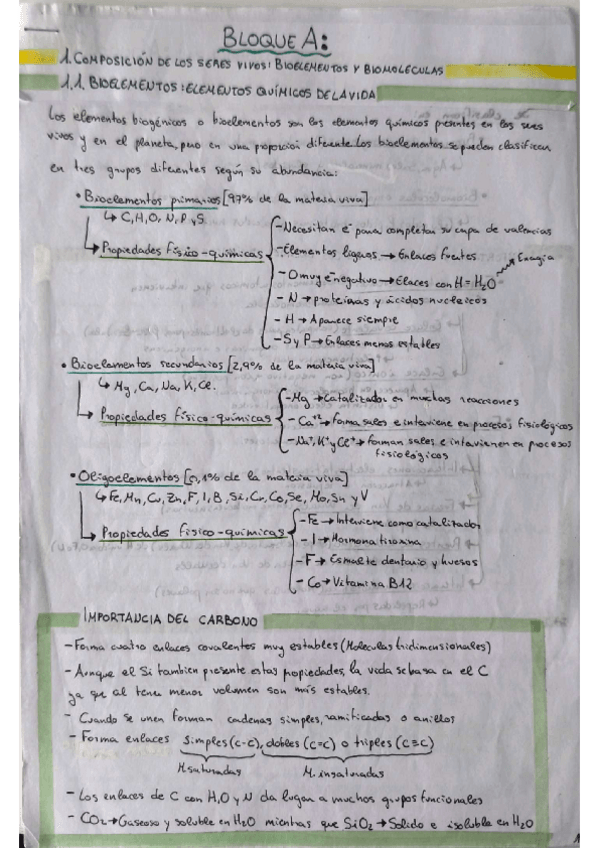 BLOQUE A:
1. COMPOSICIÓN DE LOS SERES VIVOS: BIOELEMENTOS Y BIOMOLÉCULAS
1.1. BIOELEMENTOS: ELEMENTOS QUÍMICOS DE LA VIDA
Los elementos biogénicos o bioelementos son los elementos químicos presentes en los seres
vivos y en el planeta, pero en una proporción diferente. Los bioelementos se pueden clasificar
en tres grupos diferentes según su abundancia:
• Bioelementos primarios [97% de la materia viva]
↳ C, H, O, N, P y S.
↳ Propiedades físico-químicas
- Necesitan e⁻ para completar su capa de valencias
- Elementos ligeros → Enlaces fuertes
- O muy e⁻negativo → Elaces con H = H₂O → Energía
- N → proteínas y ácidos nucleicos
- H → Aparece siempre
- S y P → Enlaces menos estables
• Bioelementos secundarios [2,9% de la materia viva]
↳ Mg, Ca, Na, K, Cl.
↳ Propiedades físico-químicas
- Mg → Catalizador en muchas reacciones
- Ca⁺² → forma sales e interviene en procesos fisiológicos
- Na⁺, K⁺ y Cl⁺ → forman sales e intervienen en procesos
fisiológicos
• Oligoelementos [0,1% de la materia viva]
↳ Fe, Mn, Cu, Zn, F, I, B, Si, Cr, Co, Se, Mo, Sn y V
↳ Propiedades físico-químicas
- Fe → Interviene como catalizador
- I → Hormona tiroxina
- F → Esmalte dentario y huesos
- Co → Vitamina B12
IMPORTANCIA DEL CARBONO
- Forma cuatro enlaces covalentes muy estables (Moleculas tridimensionales)
- Aunque el Si tambien presente estas propiedades, la vida se basa en el C
ya que al tener menor volumen son más estables.
- Cuando se unen forman cadenas simples, ramificadas o anillos
- Forma enlaces simples (C-C), dobles (C=C) o triples (C≡C)
M. saturadas M. insaturadas
- Los enlaces de C con H, O y N da lugar a muchos grupos funcionales
- CO₂ → Gaseoso y soluble en H₂O mientras que SiO₂ → Solido e isoluble en H₂O